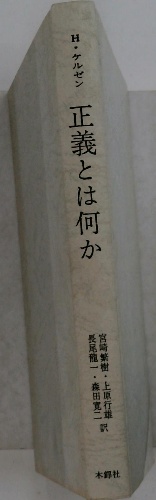 H・ケルゼン
正義とは何か
宮崎繁樹・上原行雄
長尾龍一・森田寛二 訳
木鐸社